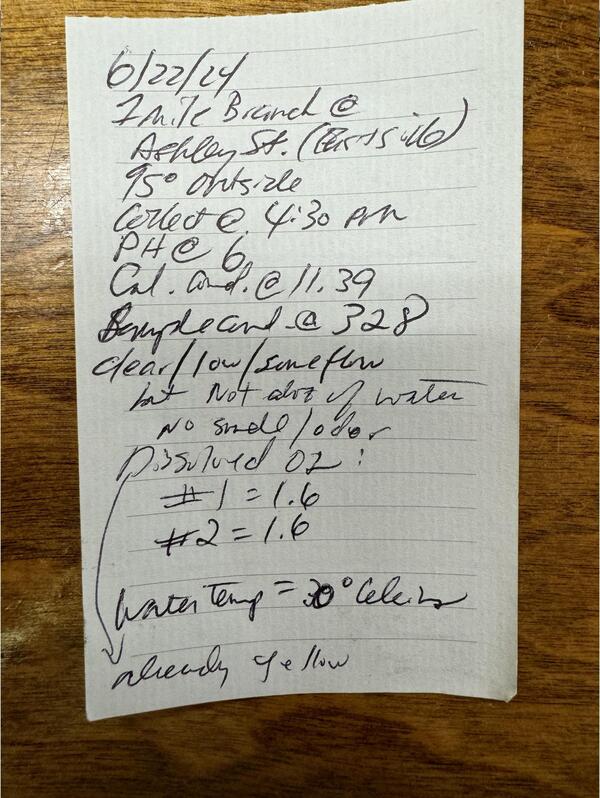 6/22/24
1 Mile Branch @
Ashley St. (East side)
95° outside
Collect @ 4:30 pm
PH @ 6
Cal. Cond. @ 11.39
Sample Cond. @ 328
clear/low/some flow
but Not alot of water
No smell/odor
Dissolved O2:
#1 = 1.6
#2 = 1.6
Water Temp = 30° Celcius
already yellow